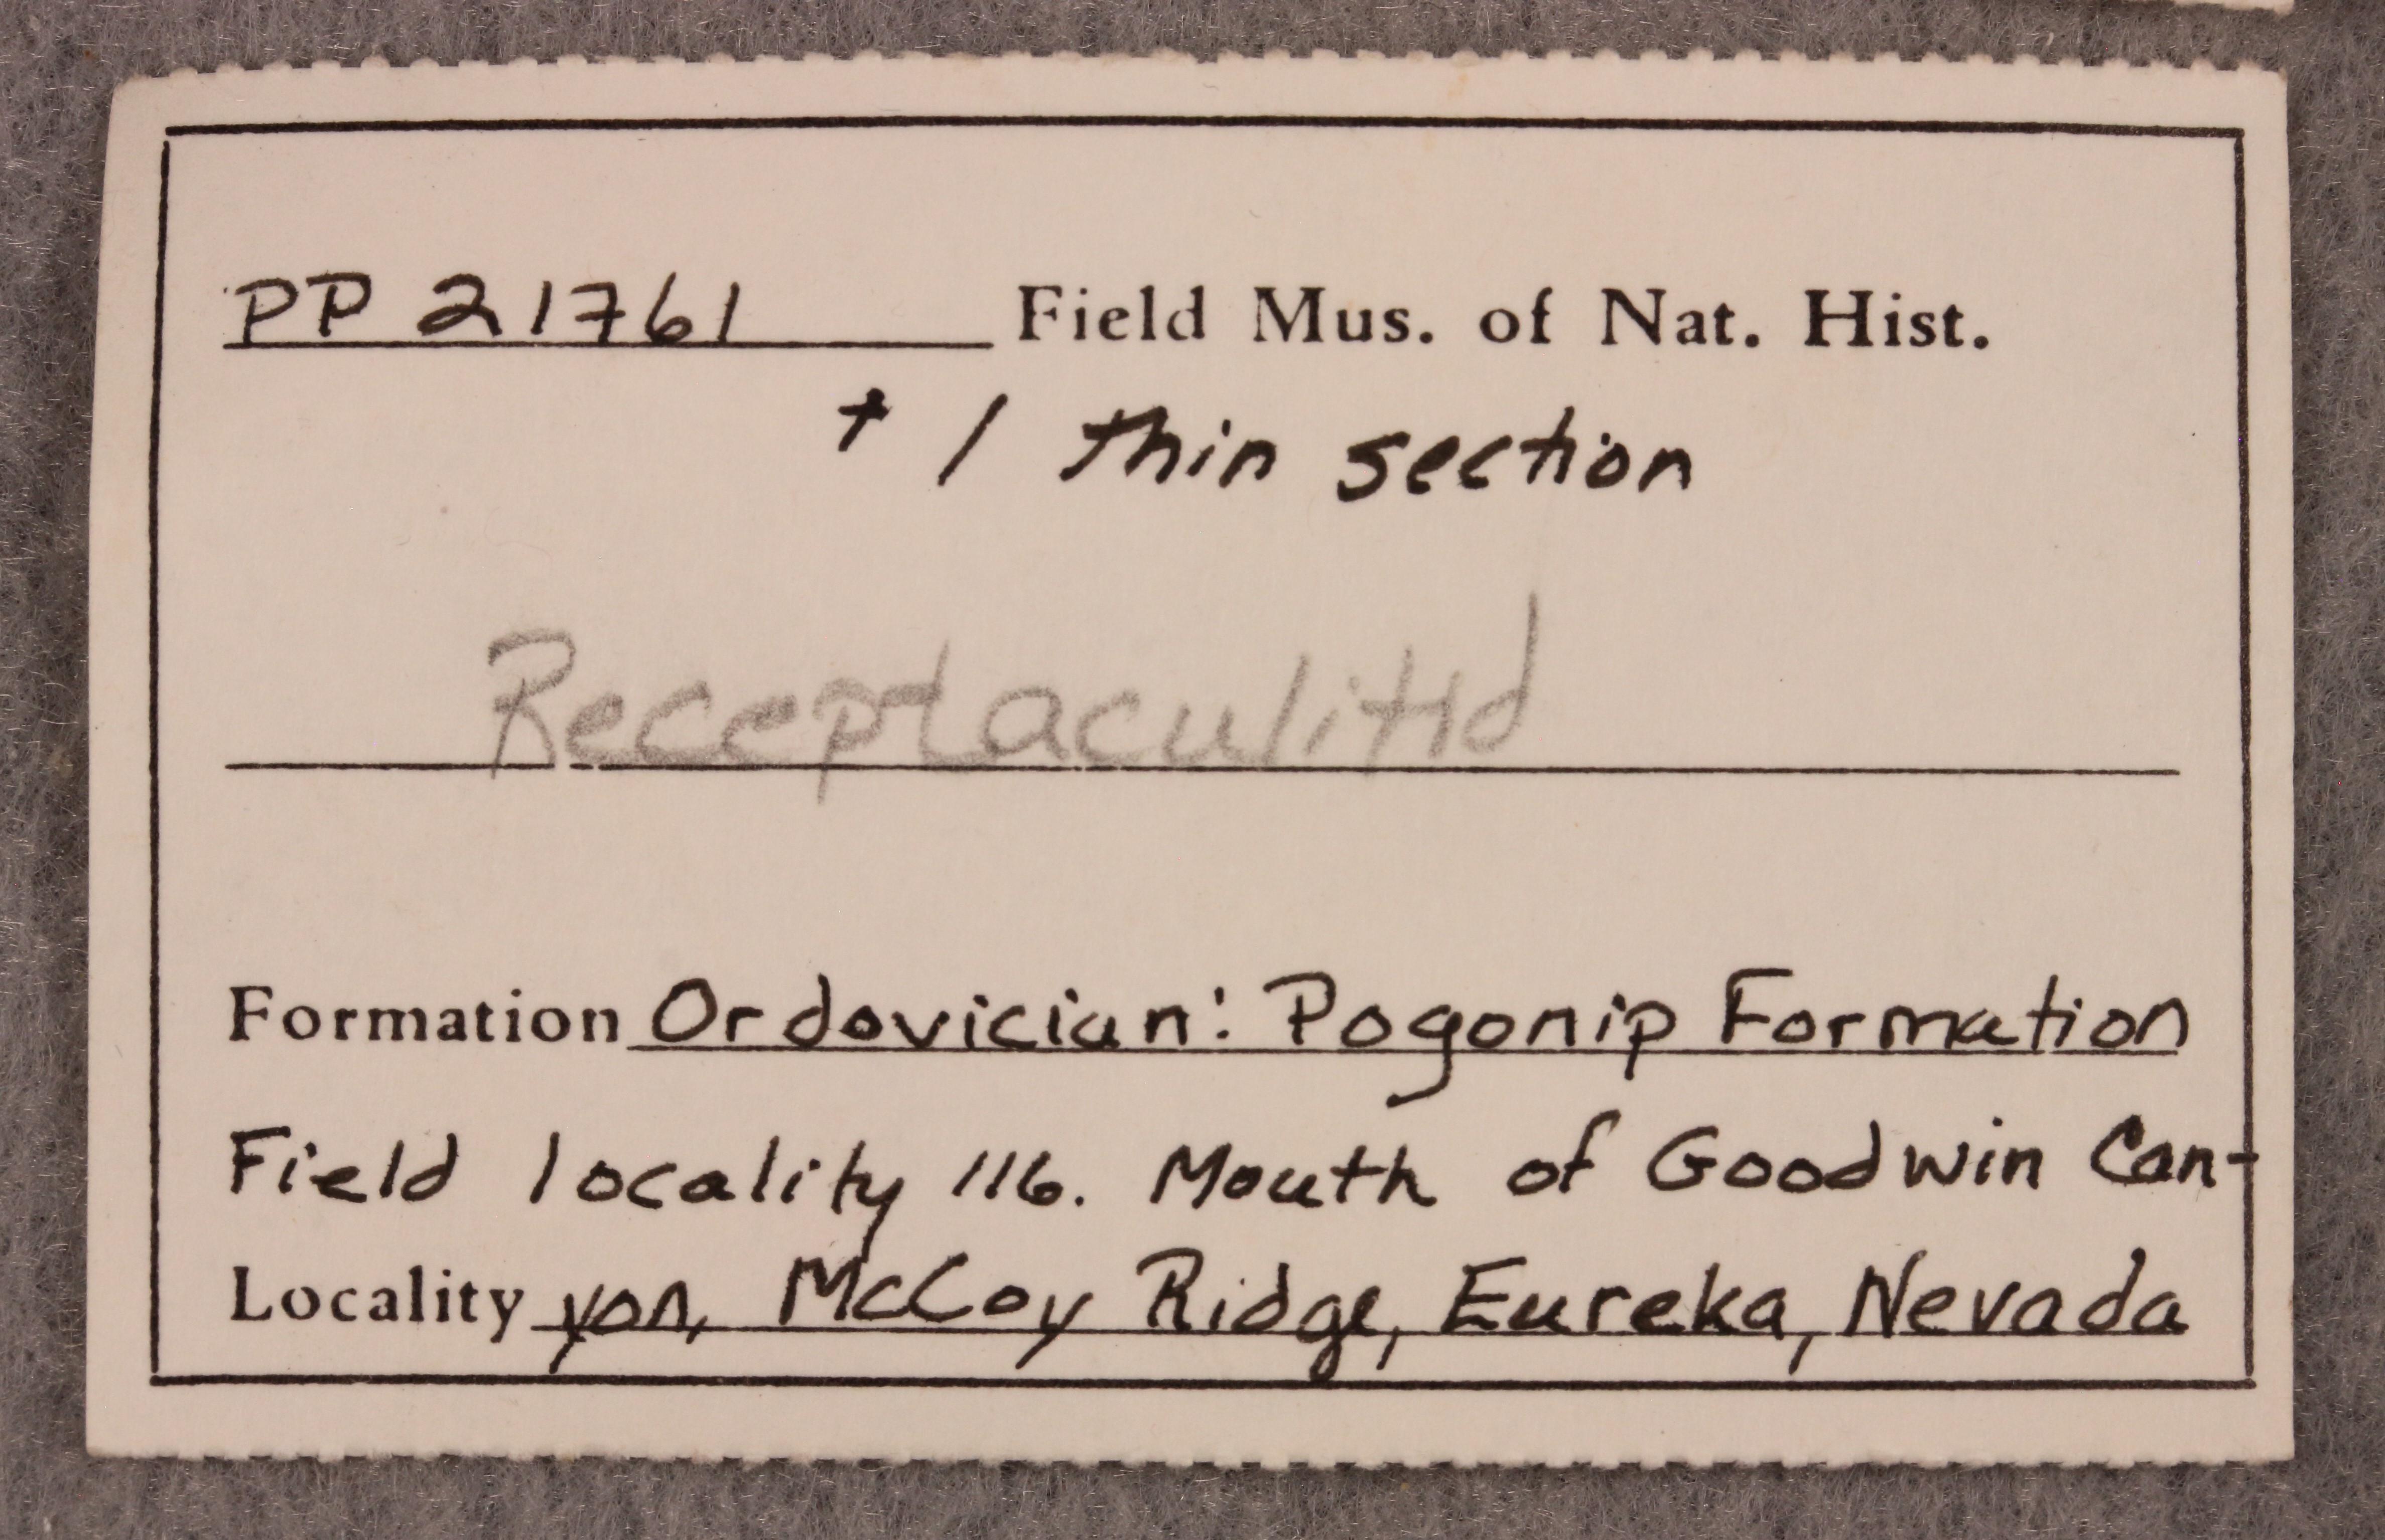 PP 21761 Field Mus. of Nat. Hist.
+ 1 thin section
Receptaculitid
Formation Ordovician: Pogonip Formation
Field locality 116. Mouth of Goodwin Can-
Locality yon, McCoy Ridge, Eureka, Nevada